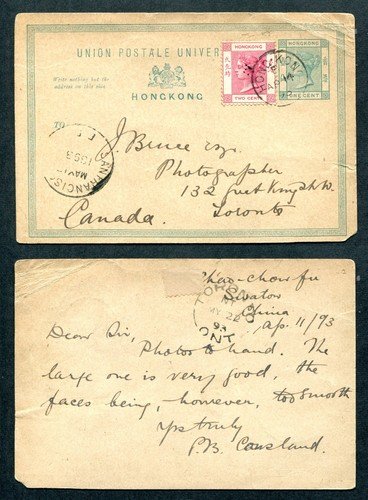 UNION POSTALE UNIVER
Write nothing but the
address on this side
HONGKONG
HONGKONG
TWO CENTS
HONGKONG
AP
ONE CENT
TO
SAN FRANCISCO
MAY
1893
J. Bruce Esqr.
Photographer
132 King St W.
Toronto
Canada.
Chao-chow-fu
Swatow
China
Ap. 11/93
TORONTO
MY 22
93
ONT
Dear Sir,
Photos to hand. The
large one is very good, the
faces being, however, too smooth
yrs truly
P.B. Cousland.